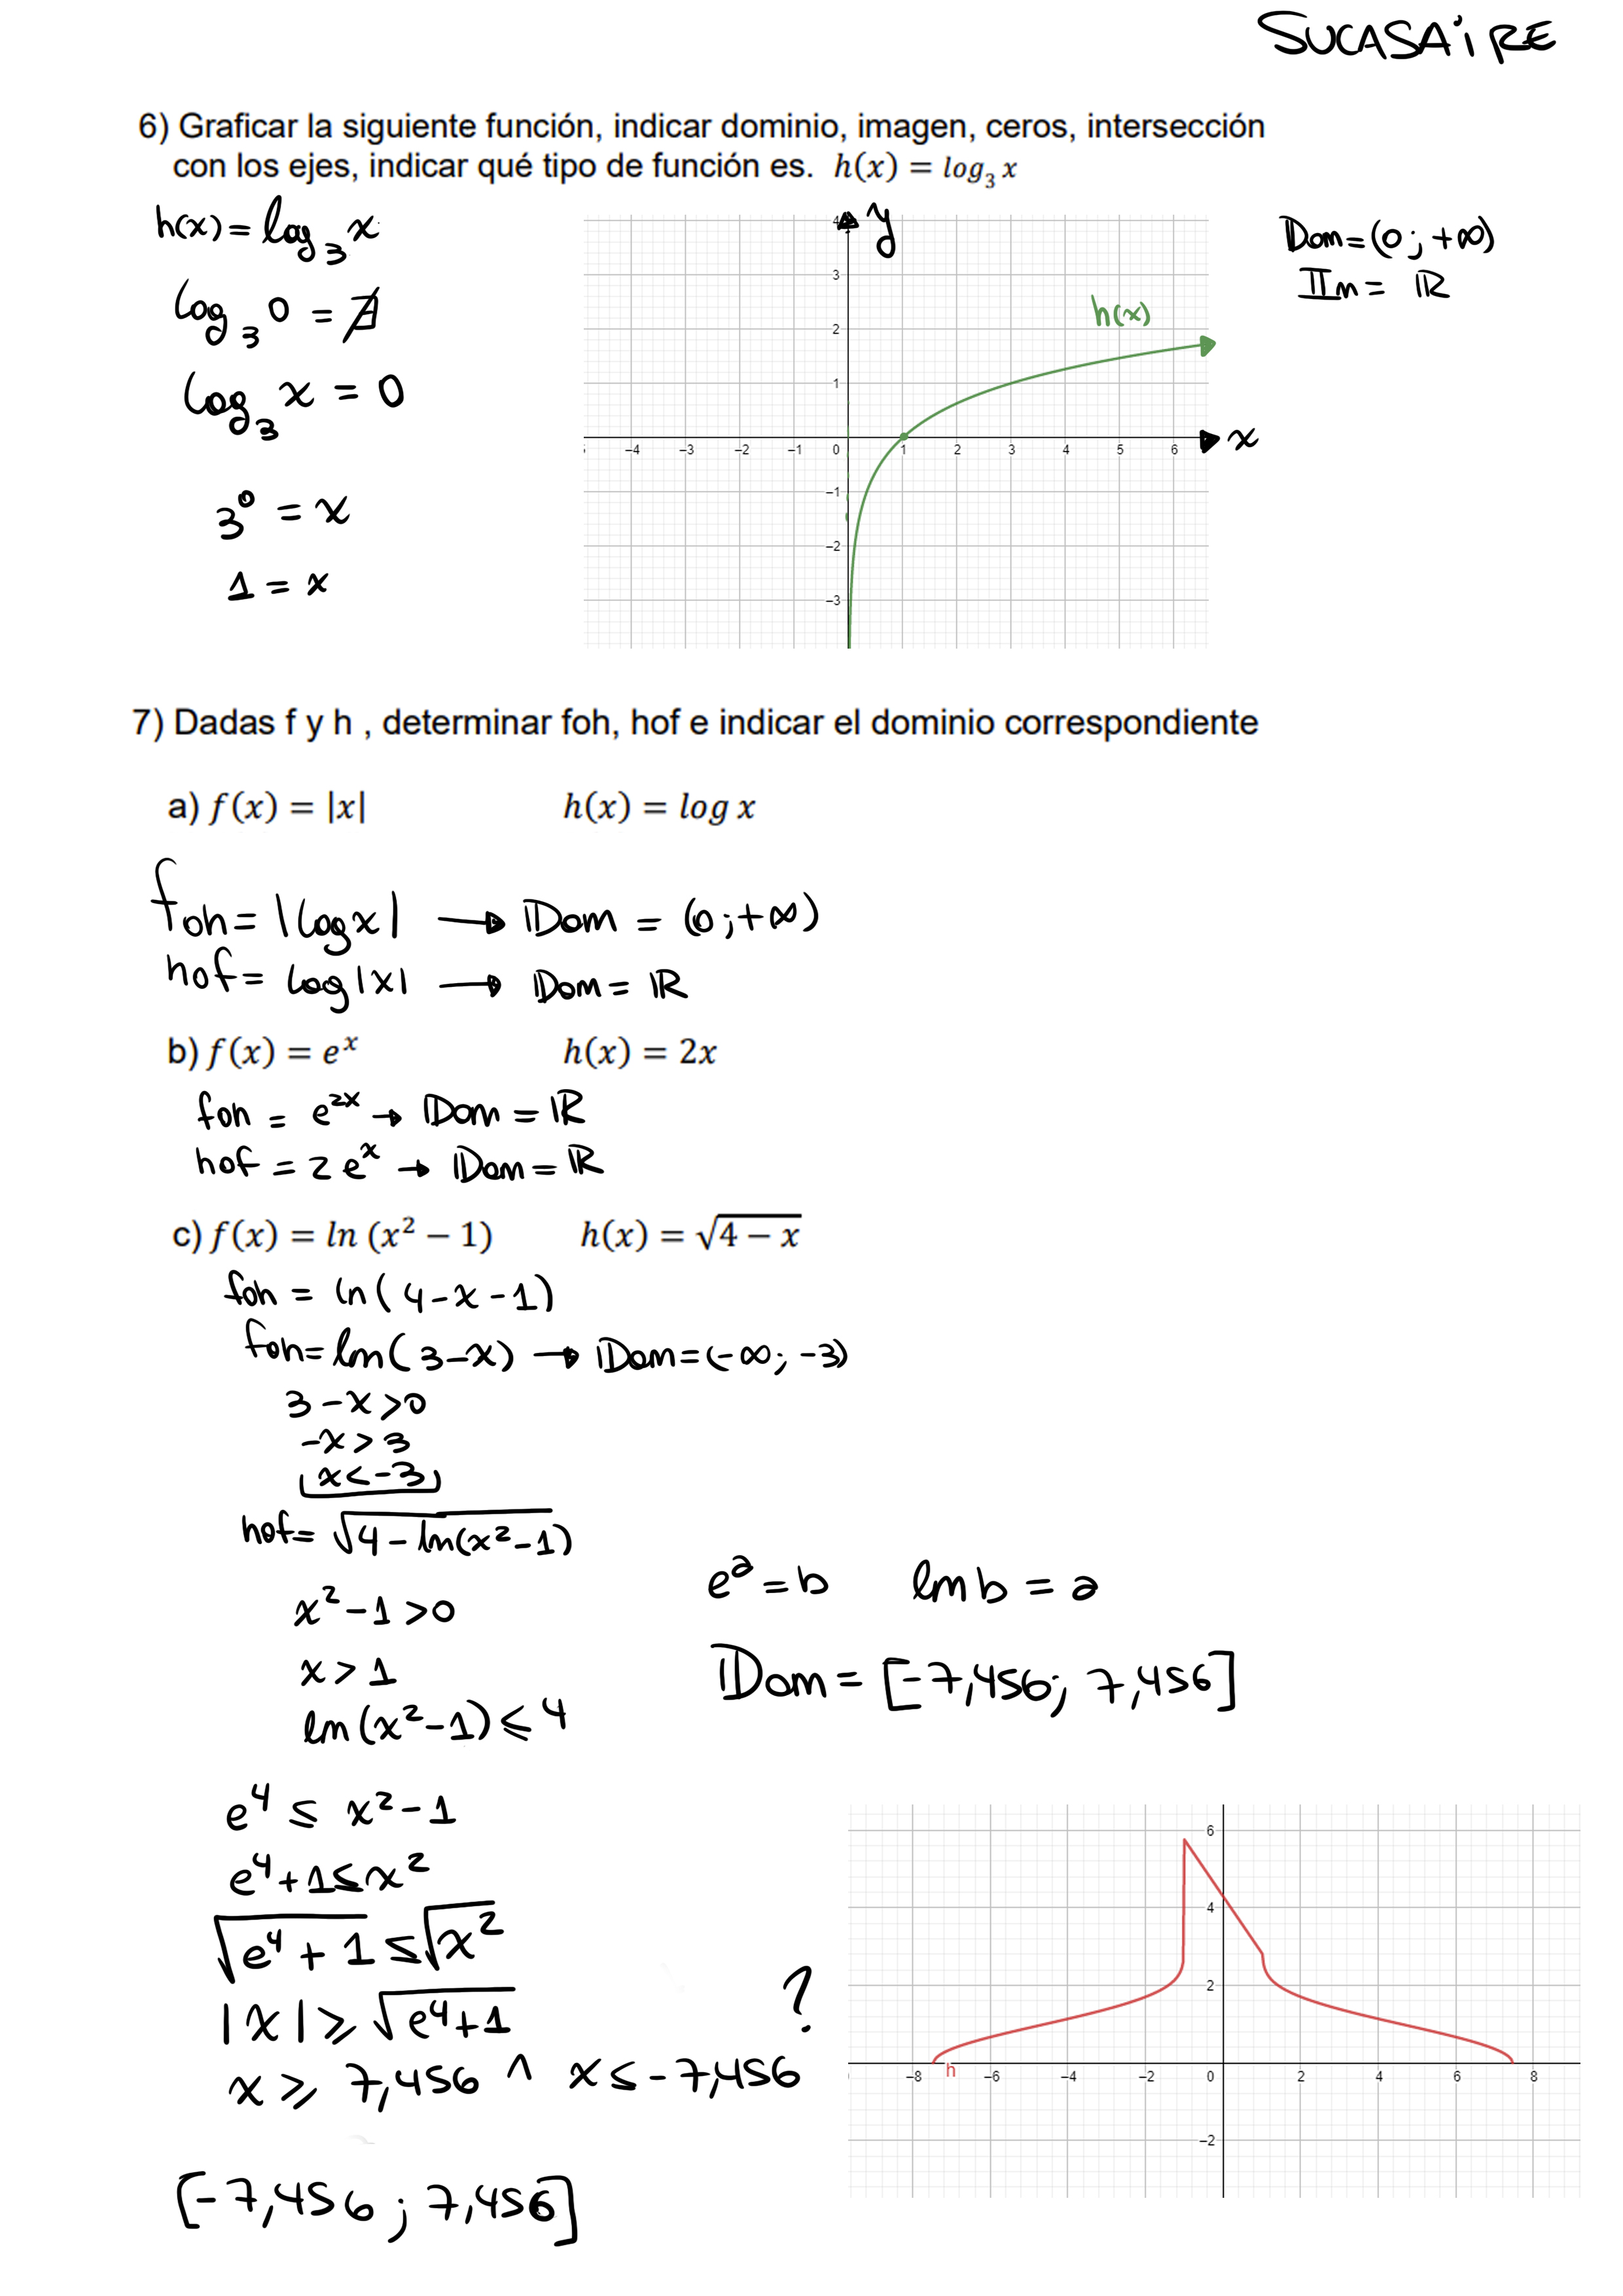 SUCASAiRE
6) Graficar la siguiente función, indicar dominio, imagen, ceros, intersección
con los ejes, indicar qué tipo de función es. h(x) = log₃ x
h(x) = log₃ x
log₃ 0 = ∄
log₃ x = 0
3⁰ = x
1 = x
y
4
3
2
1
h(x)
−4 −3 −2 −1 0 1 2 3 4 5 6 x
−1
−2
−3
Dom = (0 ; +∞)
Im = ℝ
7) Dadas f y h , determinar foh, hof e indicar el dominio correspondiente
a) f(x) = |x| h(x) = log x
foh = |log x| → Dom = (0 ; +∞)
hof = log |x| → Dom = ℝ
b) f(x) = eˣ h(x) = 2x
foh = e²ˣ → Dom = ℝ
hof = 2 eˣ → Dom = ℝ
c) f(x) = ln (x² − 1) h(x) = √(4 − x)
foh = ln( 4 - x - 1)
foh = ln( 3 - x) → Dom = (-∞ ; -3)
3 - x > 0
-x > 3
x < -3
hof = √(4 - ln(x² - 1))
x² - 1 > 0
x > 1
ln (x² - 1) ⩽ 4
e⁴ ≤ x² - 1
e⁴ + 1 ≤ x²
√(e⁴ + 1) ≤ √x²
|x| ⩾ √(e⁴ + 1)
x ⩾ 7,456 ^ x ≤ -7,456
[-7,456 ; 7,456]
eᵃ = b ln b = a
Dom = [-7,456; 7,456]
?
6
4
2
−8 h −6 −4 −2 0 2 4 6 8
−2